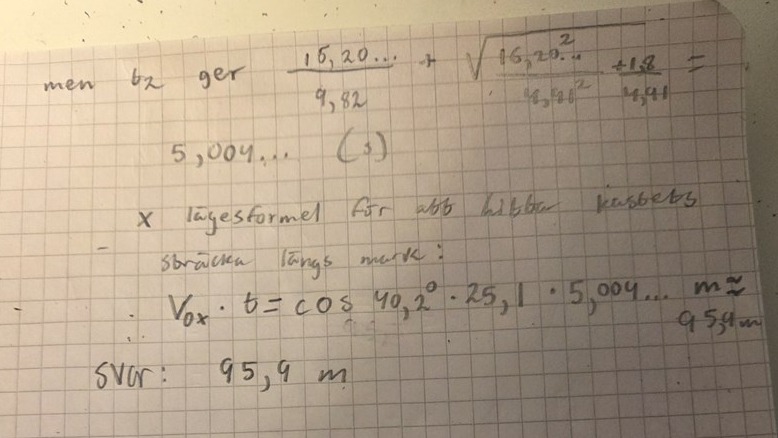 men t₂ ger 16,20.../9,82 + √(16,20...²/4,91² +1,8/4,91) =
5,004... (s)
x lägesformel för att hitta kastets
sträcka längs mark:
V₀ₓ · t = cos 40,2° · 25,1 · 5,004... m ≈
95,9 m
svar: 95,9 m